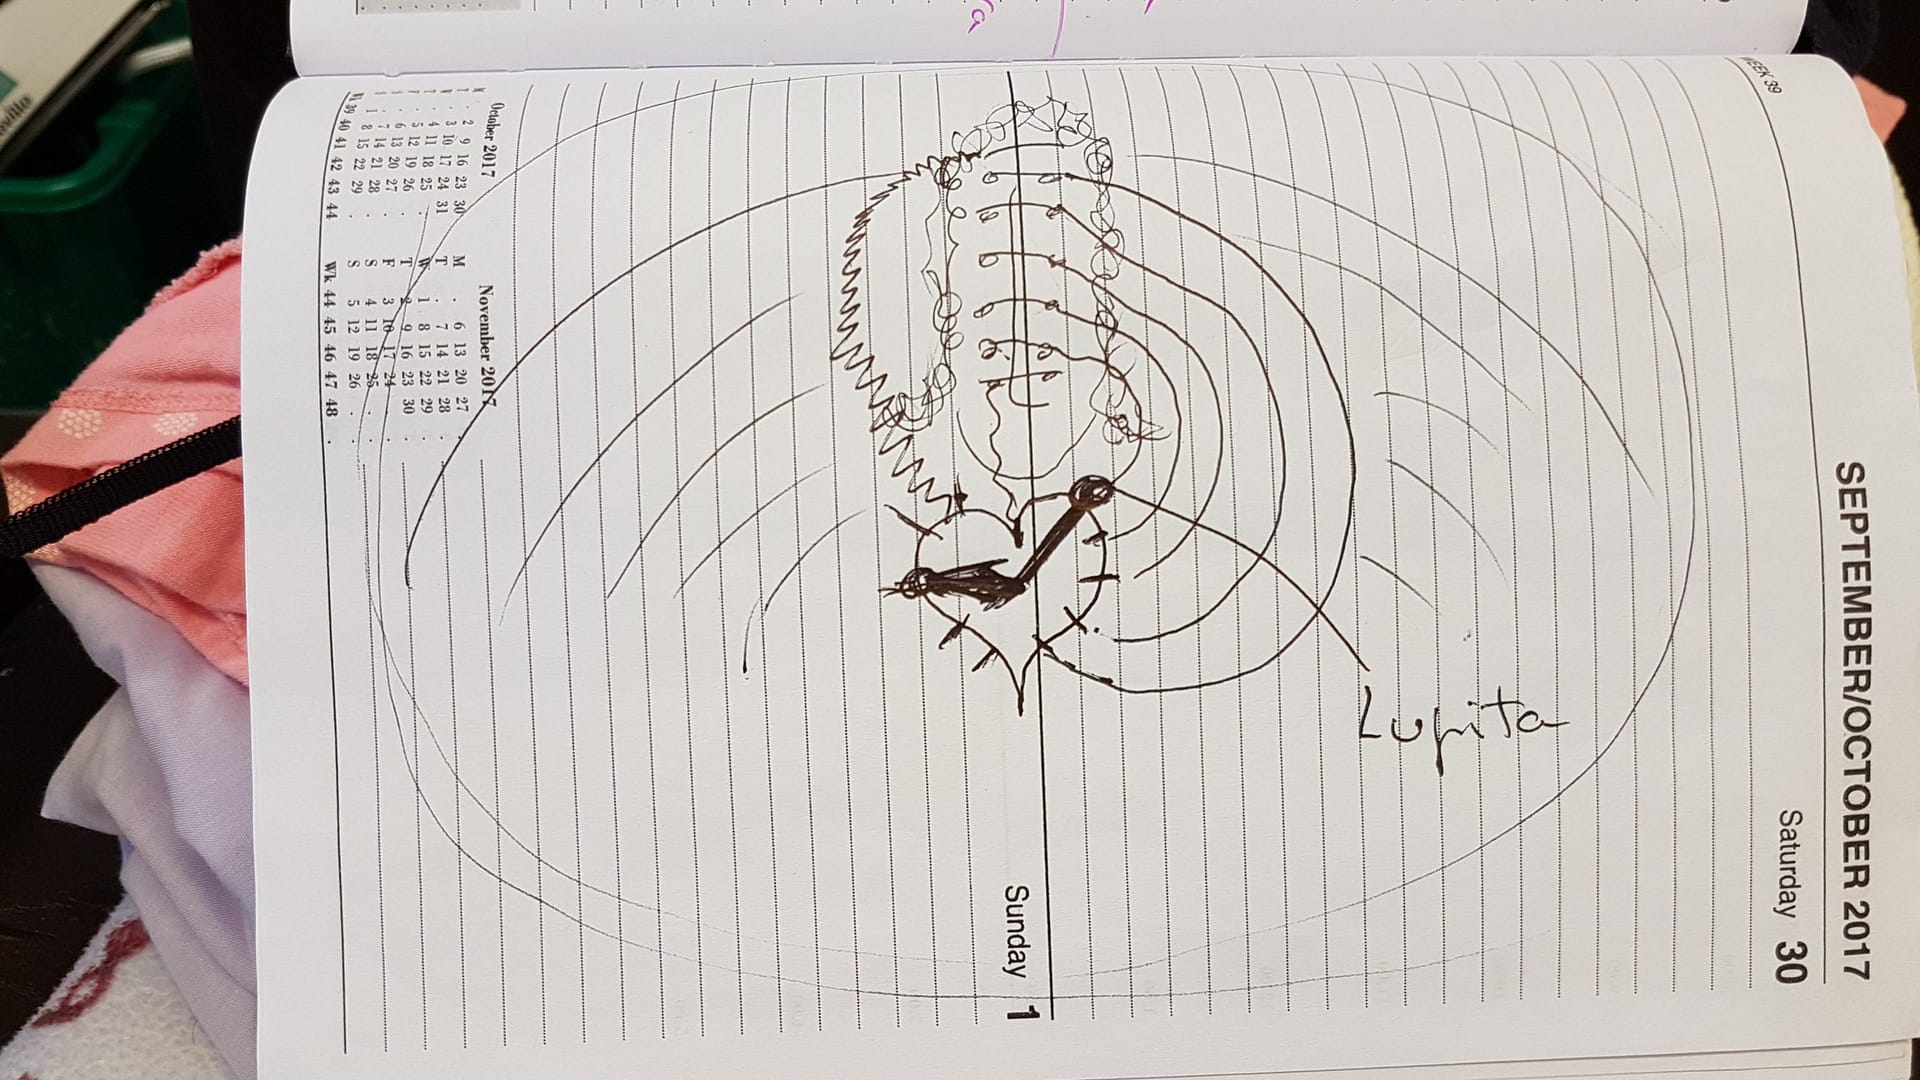 SEPTEMBER/OCTOBER 2017
WEEK 39
Saturday 30
Lupita
Sunday 1
October 2017
M . 2 9 16 23 30
T . 3 10 17 24 31
W . 4 11 18 25 .
T . 5 12 19 26 .
F . 6 13 20 27 .
S . 7 14 21 28 .
S 1 8 15 22 29 .
Wk 39 40 41 42 43 44
November 2017
M . 6 13 20 27 .
T . 7 14 21 28 .
W 1 8 15 22 29 .
T 2 9 16 23 30 .
F 3 10 17 24 . .
S 4 11 18 25 . .
S 5 12 19 26 . .
Wk 44 45 46 47 48 .